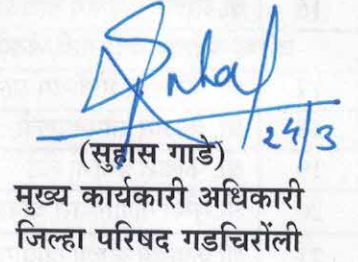 24/3
(सुहास गाडे)
मुख्य कार्यकारी अधिकारी
जिल्हा परिषद गडचिरोंली